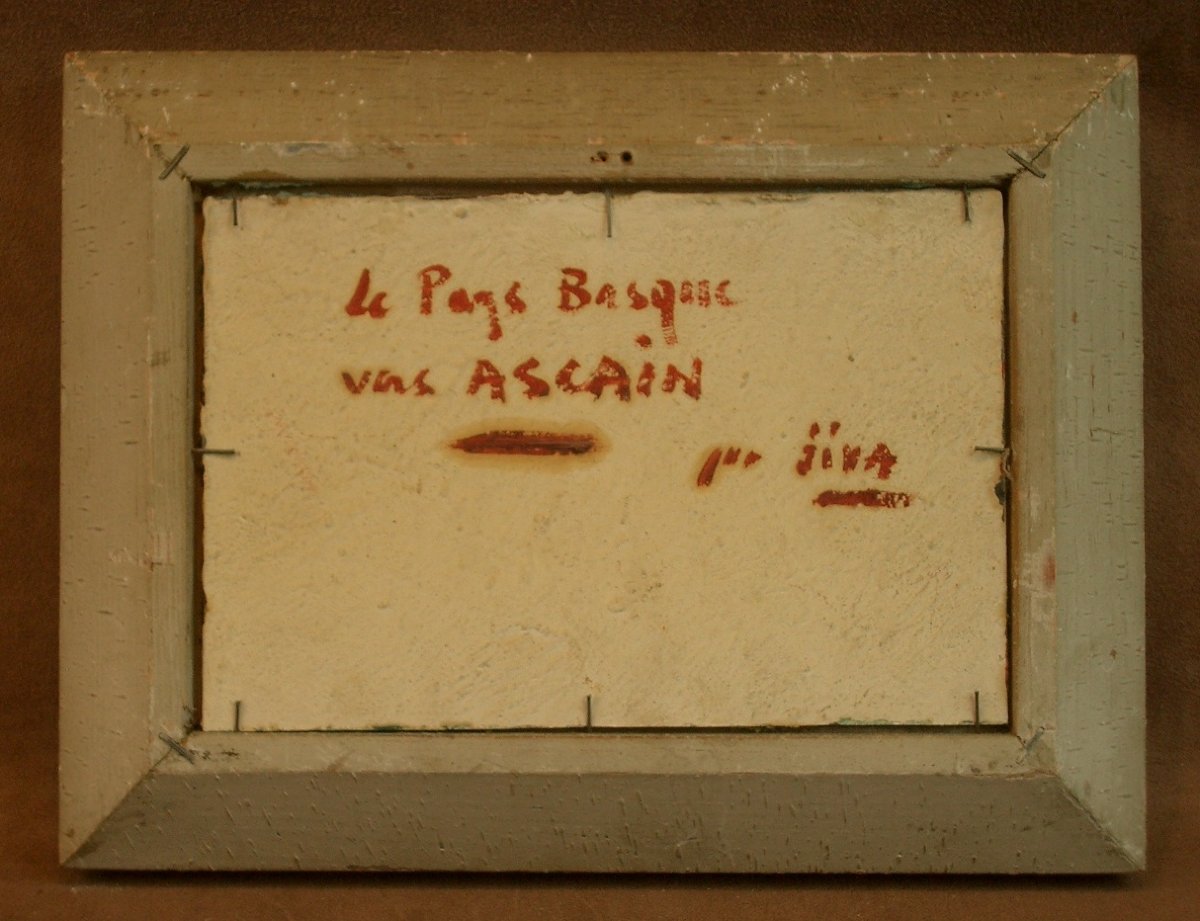 Le Pays Basque
vers ASCAiN
par jiVA